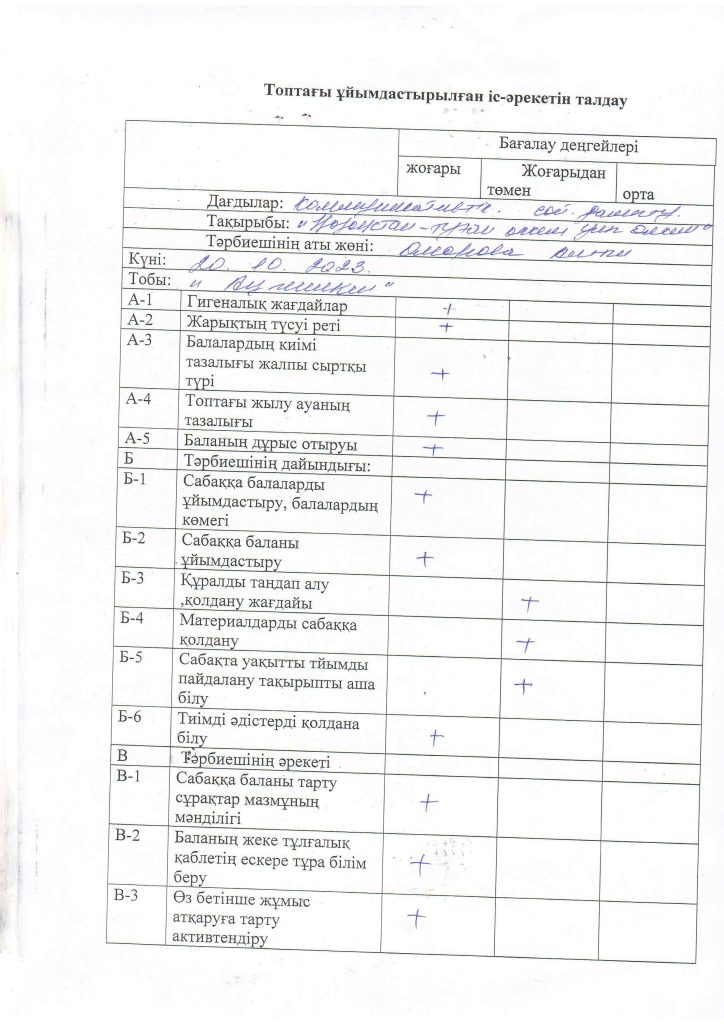 Топтағы ұйымдастырылған іс-әрекетін талдау
Бағалау деңгейлері
жоғары
Жоғарыдан
төмен
орта
Дағдылар: Коммуникативтік.
Тақырыбы: "Қазақстан - туған өлкем
Тәрбиешінің аты жөні: Омарова
Күні: 20. 10. 2023.
Тобы:
А-1 Гигеналық жағдайлар +
А-2 Жарықтың түсуі реті +
А-3 Балалардың киімі
тазалығы жалпы сыртқы +
түрі
А-4 Топтағы жылу ауаның +
тазалығы
А-5 Баланың дұрыс отыруы +
Б Тәрбиешінің дайындығы:
Б-1 Сабаққа балаларды +
ұйымдастыру, балалардың
көмегі
Б-2 Сабаққа баланы +
ұйымдастыру
Б-3 Құралды таңдап алу
,қолдану жағдайы +
Б-4 Материалдарды сабаққа +
қолдану
Б-5 Сабақта уақытты тйымды +
пайдалану тақырыпты аша
білу
Б-6 Тиімді әдістерді қолдана +
білу
В Тәрбиешінің әрекеті
В-1 Сабаққа баланы тарту
сұрақтар мазмұның +
мәнділігі
В-2 Баланың жеке тұлғалық
қаблетің ескере тұра білім +
беру
В-3 Өз бетінше жұмыс +
атқаруға тарту
активтендіру